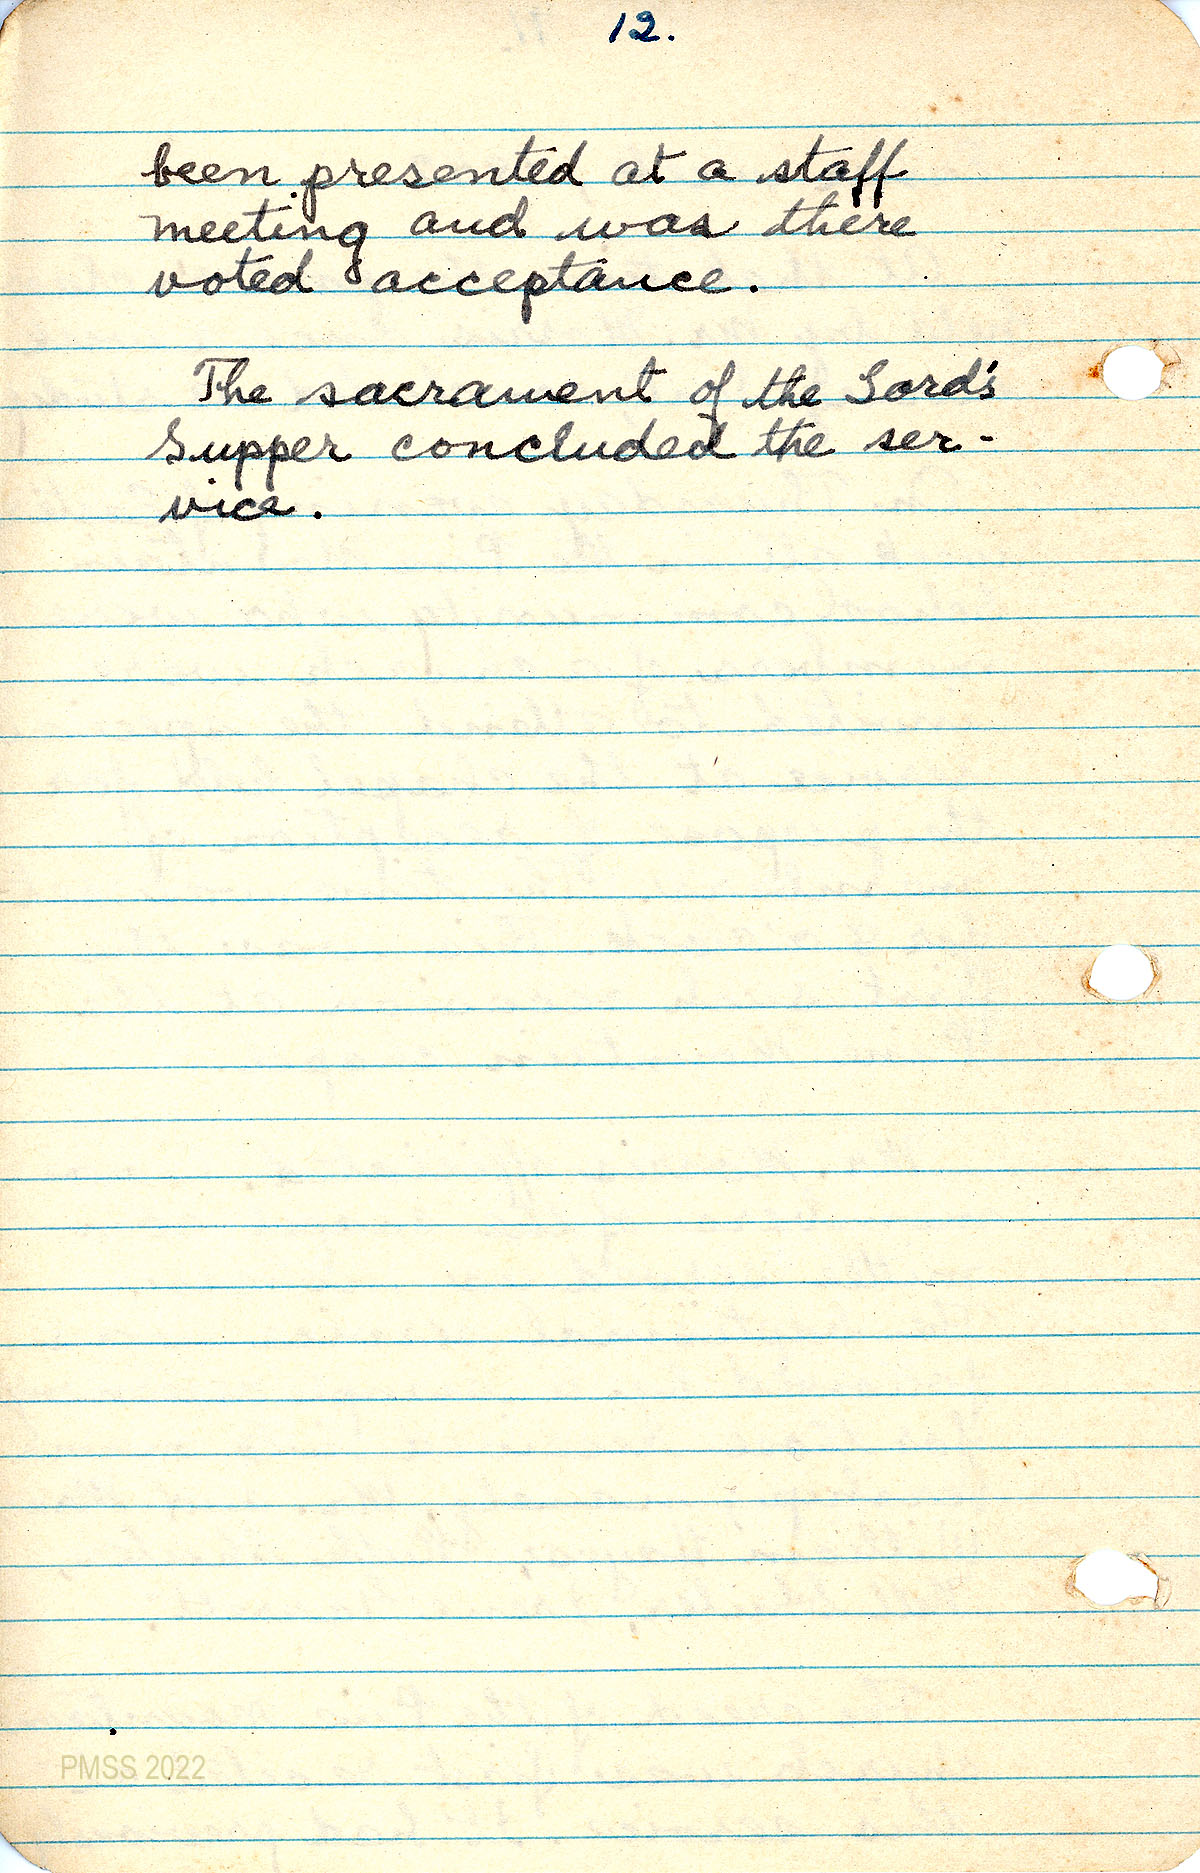 12.
been presented at a staff
meeting and was there
voted acceptance.
The sacrament of the Lord's
Supper concluded the ser-
vice.
PMSS 2022